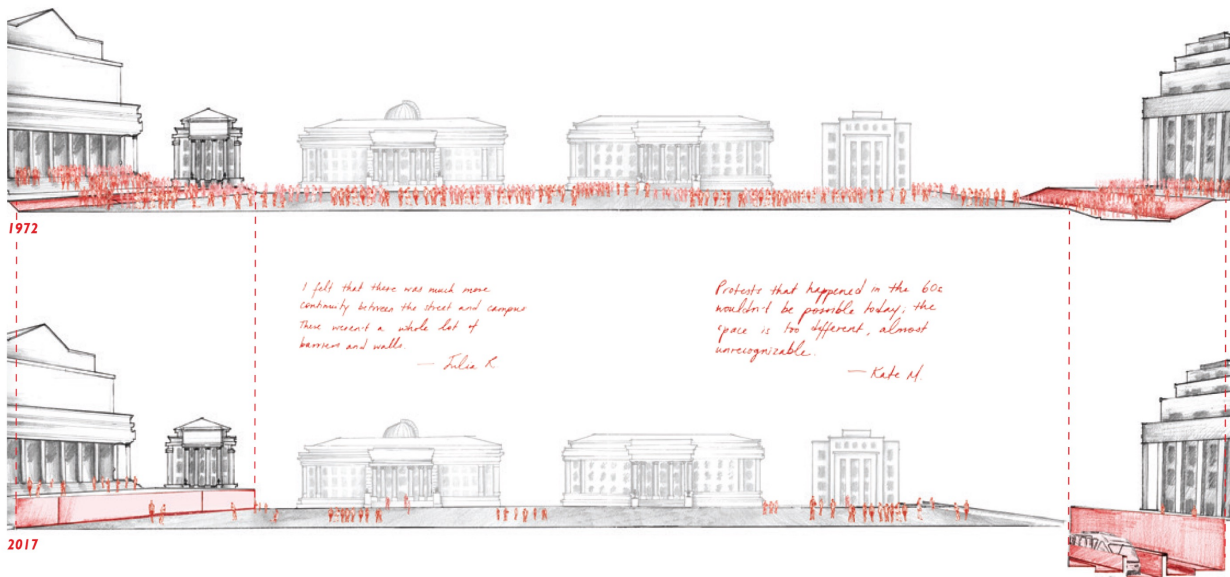 1972
I felt that there was much more
continuity between the street and campus
There weren't a whole lot of
barriers and walls.
— Julia R.
Protests that happened in the 60s
wouldn't be possible today; the
space is too different, almost
unrecognizable.
— Kate M.
2017